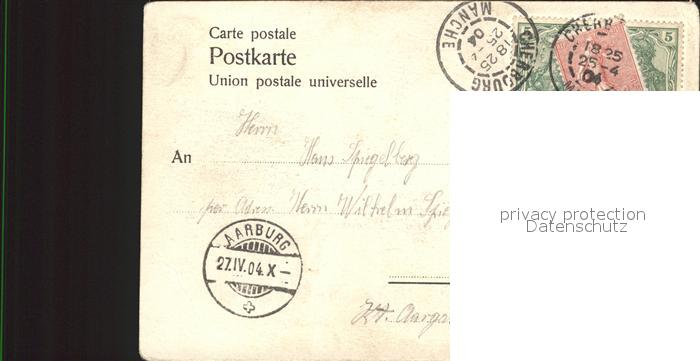 Carte postale
Postkarte
Union postale universelle
CHERBOURG
MANCHE
18 25
25 - 4
04
CHERB
18 25
25 - 4
04
5
An
Herrn
Hans Spiegelberg
per Adr. Herrn Wilhelm Spieg
AARBURG
27.IV.04.X-
Kt. Aarga
privacy protection
Datenschutz